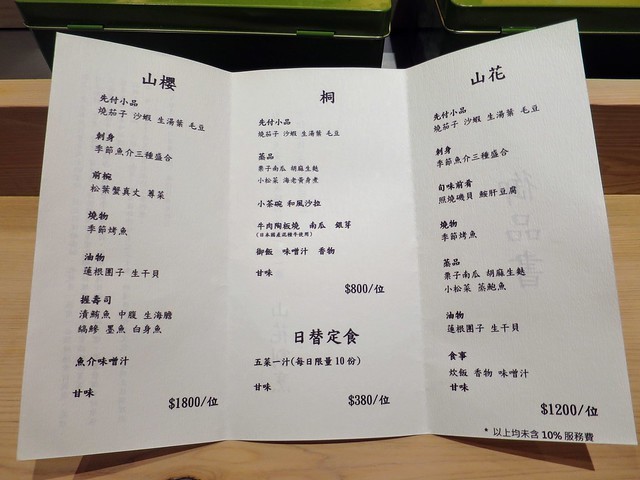 山櫻
先付小品
燒茄子 沙蝦 生湯葉 毛豆
刺身
季節魚介三種盛合
前椀
松葉蟹真丈 蓴菜
燒物
季節烤魚
油物
蓮根團子 生干貝
握壽司
漬鮪魚 中腹 生海膽
縞鰺 墨魚 白身魚
魚介味噌汁
甘味
$1800/位
桐
先付小品
燒茄子 沙蝦 生湯葉 毛豆
蒸品
栗子南瓜 胡麻生麩
小松菜 海老黃身煮
小茶碗 和風沙拉
牛肉陶板燒 南瓜 銀芽
(日本國產混種牛使用)
御飯 味噌汁 香物
甘味
$800/位
日替定食
五菜一汁(每日限量10份)
甘味
$380/位
山花
先付小品
燒茄子 沙蝦 生湯葉 毛豆
刺身
季節魚介三種盛合
旬味前肴
照燒磯貝 鮟肝豆腐
燒物
季節烤魚
蒸品
栗子南瓜 胡麻生麩
小松菜 蒸鮑魚
油物
蓮根團子 生干貝
食事
炊飯 香物 味噌汁
甘味
$1200/位
* 以上均未含10%服務費